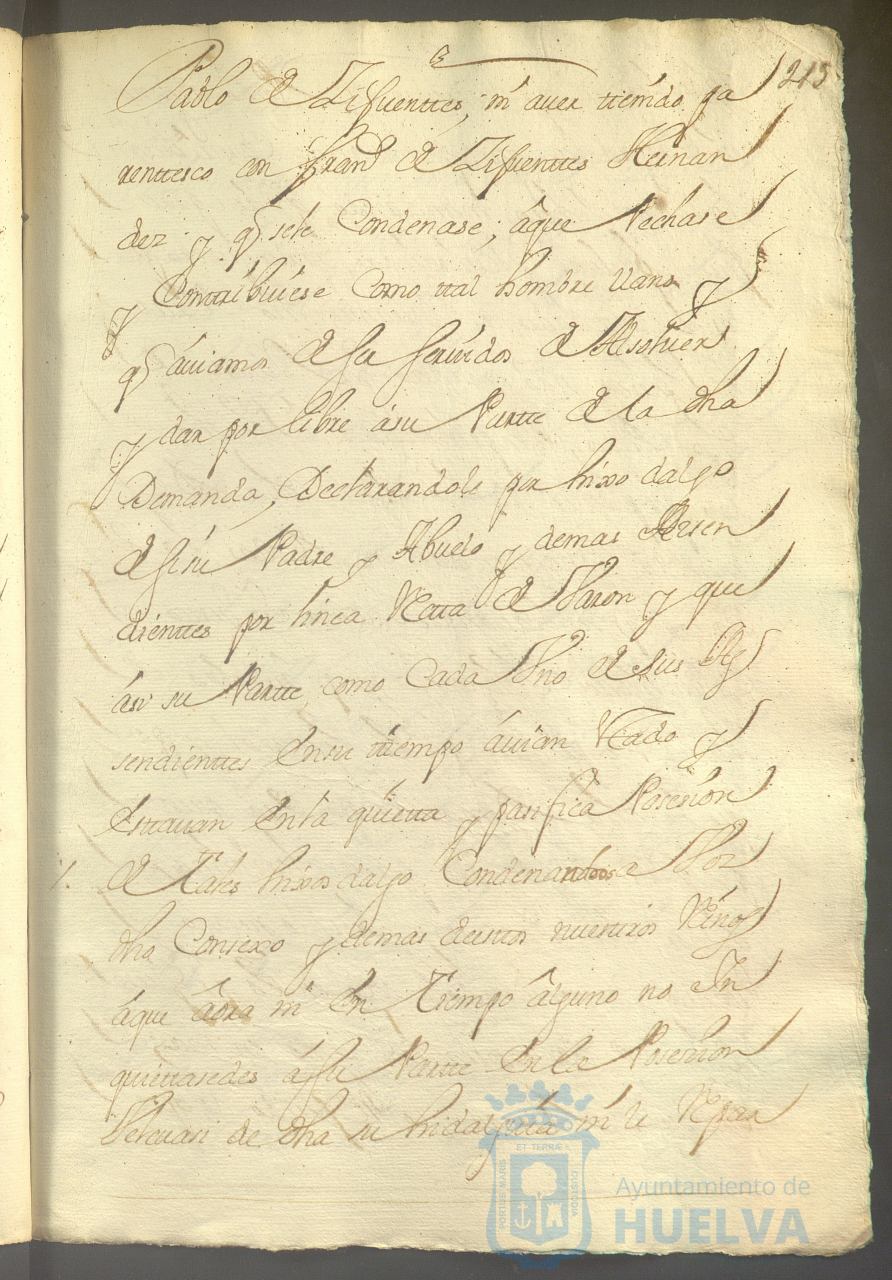 215
Pablo de Zifuenttes, ni aver ttenido pa
renttesco con Franco de Zifuenttes Hernan
dez y q sele Condenase; áque Pechase
y Conttribuiese Como ttal hombre llano y
q áviamos de ser servidos de Absolver
y dar por libre á su Partte de la dha
Demanda, Declarandole por hixo dalgo
de su Padre y Abuelo y demas Asen
dienttes por linea Recta de Varon y que
ási su Partte, como Cada Vno de sus As
sendienttes en su tiempo ávian estado y
Esttavan en la quietta y pasifica Posesion
de Tales hixos dalgo Condenandoos a Vos
dho Consexo y demas destos nuesttros Reinos
áque áora ni en Tiempo álguno no in
quiettasedes á su Partte en la Posesion
de dha su hidalguia ni le
PORTUS MARIS ET TERRÆ CUSTODIA
Ayuntamiento de
HUELVA